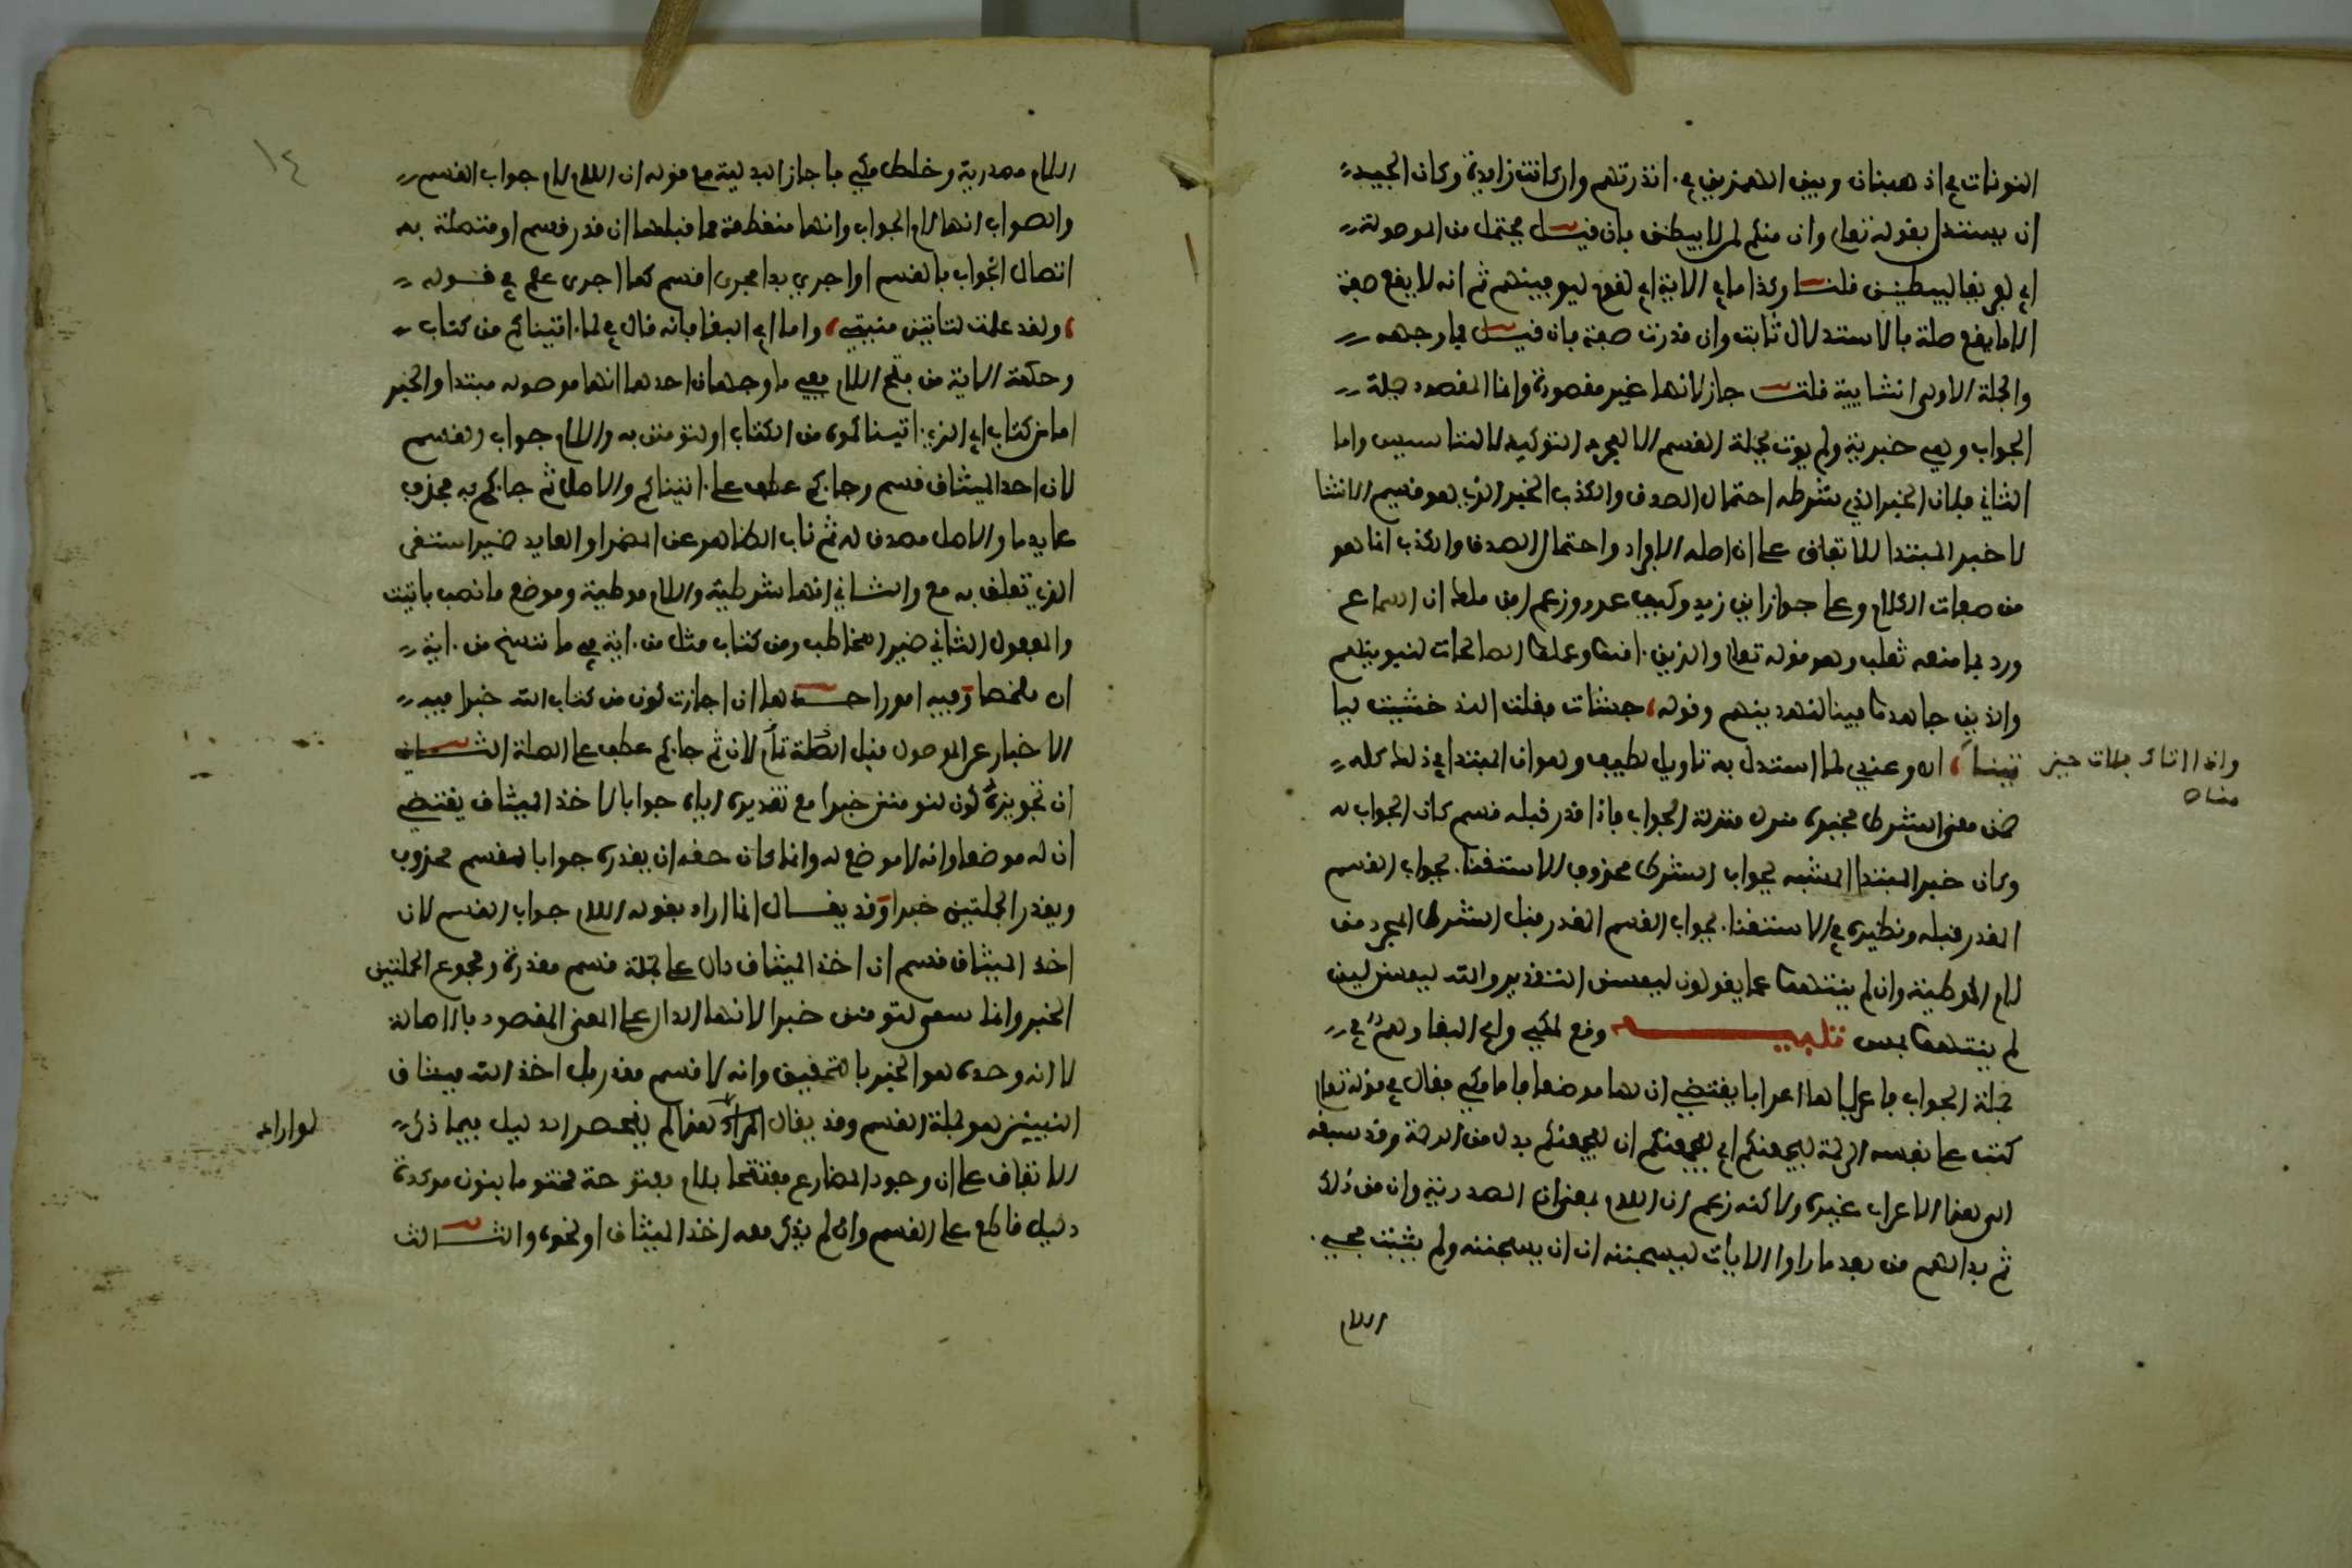 النونات في اذهبنان وبين الهمزتين في ءانذرتهم وان كانت زايدة وكان الجيد
ان يستدل بقوله تعلى وان منكم لمن ليبطئن بان قيل يحتمل من الموصوفة
اي لفريفا ليبطئن قلت وكذا ما في الاية اي لقوم ليوفينهم ثم انه لا يقع صفة
الا ما يقع صلة بالاستدلال ثابت وان قدرت صفة بان قيل فما وجهه
والجملة الاولى انشايية قلت جاز لانها غير مقصودة وانما المقصود جملة
الجواب وهي خبرية ولم يوت بجملة القسم الا لمجرد التوكيد لا للتاسيس واما
الثاني فلان الخبر الذي شرطه احتمال الصدق والكذب الخبر الذي هو قسيم الانشا
لا خبر المبتدا للاتفاق على ان اصله الافراد واحتمال الصدق والكذب انما هو
من صفات الكلام وعلى جواز اين زيد وكيف عمرو وزعم ابن ملك ان السماع
ورد بما منعه ثعلب وهو قوله تعلى والذين ءامنوا وعملوا الصالحات لنبوينهم
والذين جاهدوا فينا لنهدينهم وقوله جشات فقلت الذ خشيت ليا
تينا اه وعندي لما استدل به تاويل لطيف وهو ان المبتدا في ذلك كله
ضمن معنى الشرط فخبره منزل منزلة الجواب فاذا قدر قبله قسم كان الجواب له
وكان خبر المبتدا المشبه لجواب الشرط محذوف للاستغنا بجواب القسم
المقدر قبله ونظيره في الاستغنا بجواب القسم المقدر قبل الشرط المجرد من
لام الموطية وان لم ينتهوا عما يقولون ليمسن التقدير والله ليمسن لين
لم ينتهوا يمس تنبيه وقع لمكي وابي البقا وهم في
جملة الجواب فاعرباها اعرابا يقتضي ان لها موضعا فاما مكي فقال في قوله تعلى
كتب على نفسه الرحمة ليجمعنكم اي ليجمعنكم ان ليجمعنكم بدل من الرحمة وقد سبقه
الى هذا الاعراب غيره ولاكنه زعم ان اللام بمعنى ان المصدرية وان من ذلك
ثم بدا لهم من بعد ما راوا الايات ليسجننه ان ان يسجننه ولم يثبت مجي
اللام
وانما اتاك فلات حين
مناص
١٤
اللام مصدرية وخلط مكي فاجاز البدلية مع قوله ان اللام لام جواب القسم
والصواب انها لام الجواب وانها منقطعة مما قبلها ان قدر قسم او متصلة به
اتصال الجواب بالقسم او اجري بدا مجرى اقسم كما اجرى علم في قوله
ولقد علمت لتاتين منيتي واما ابو البقا فانه قال في لما ءاتيناكم من كتاب
وحكمة الاية من فتح اللام ففي ما وجهان احدهما انها موصولة مبتدا والخبر
اما من كتاب اي الذي ءاتيناكموه من الكتاب او لتومنن به واللام جواب القسم
لان اخذ الميثاق قسم وجاكم عطف على ءاتيناكم والاصل ثم جاكم به فحذف
عايد ما والاصل مصدق له ثم ناب الظاهر عن المضمر او العايد ضمير استقر
الذي تعلق به مع والثاني انها شرطية واللام موطية وموضع ما نصب باتيت
والمفعول الثاني ضمير المخاطب ومن كتاب مثل من ءاية في ما ننسخ من ءاية
اه ملخصا وفيه امور احدها ان اجازت كون من كتاب الله خبرا فيه
الاخبار عن الموصول قبل الصلة تام لان ثم جاكم عطف على الصلة الثاني
ان تجويزه كون لتومنن خبرا مع تقديره اياه جوابا لاخذ الميثاق يقتضي
ان له موضعا وانه لا موضع له وانما كان حقه ان يقدره جوابا لقسم محذوف
ويقدر الجملتين خبرا وقد يقال انما اراد بقوله اللام جواب القسم لان
اخذ الميثاق قسم ان اخذ الميثاق دال على جملة قسم مقدرة ومجموع الجملتين
الخبر وانما سمى لتومنن خبرا لانها الدال على المعنى المقصود بالاصالة
لا انه وحده هو الخبر بالتحقيق وانه لا قسم مقدر بل اخذ الله ميثاق
النبيئين هو جملة القسم وقد يقال المراد هذا لم ينحصر الدليل فيما ذكر
للاتفاق على ان وجود المضارع مفتتحا بلام مفتوحة مختتما بنون موكدة
دليل قاطع على القسم وان لم يذكر معه اخذ الميثاق او نحوه والثالث
لو اراد